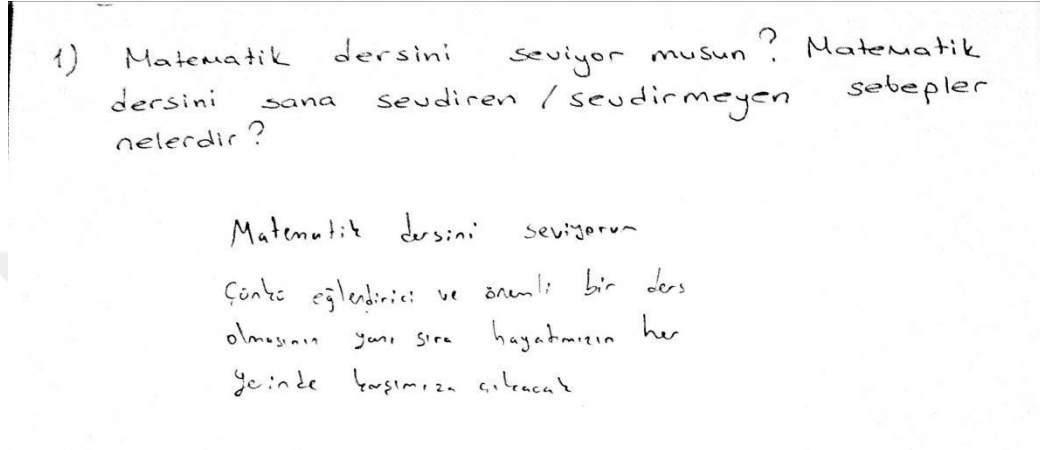 1) Matematik dersini seviyor musun? Matematik
dersini sana sevdiren / sevdirmeyen sebepler
nelerdir?
Matematik dersini seviyorum
Çünkü eğlendirici ve önemli bir ders
olmasının yanı sıra hayatımızın her
yerinde karşımıza çıkacak